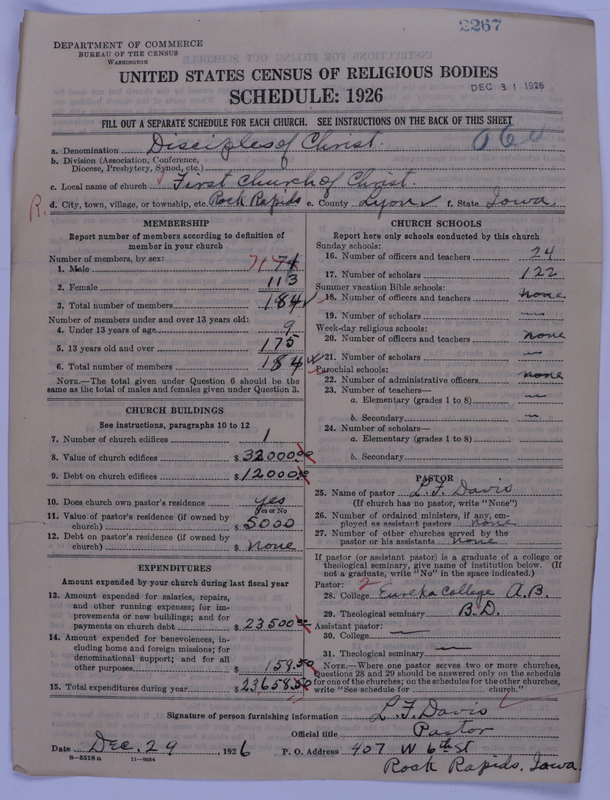 2267
DEPARTMENT OF COMMERCE
BUREAU OF THE CENSUS
WASHINGTON
UNITED STATES CENSUS OF RELIGIOUS BODIES
SCHEDULE: 1926
DEC 31 1926
FILL OUT A SEPARATE SCHEDULE FOR EACH CHURCH. SEE INSTRUCTIONS ON THE BACK OF THIS SHEET
a. Denomination Disciples of Christ.
b. Division (Association, Conference,
Diocese, Presbytery, Synod, etc.)
c. Local name of church First Church of Christ.
R. d. City, town, village, or township, etc. Rock Rapids e. County Lyon f. State Iowa.
MEMBERSHIP
Report number of members according to definition of
member in your church
Number of members, by sex:
1. Male 71 71
2. Female 113
3. Total number of members 184
Number of members under and over 13 years old:
4. Under 13 years of age 9
5. 13 years old and over 175
6. Total number of members 184
NOTE.—The total given under Question 6 should be
same as the total of males and females given under Question 3.
CHURCH BUILDINGS
See instructions, paragraphs 10 to 12
7. Number of church edifices 1
8. Value of church edifices $ 32000.00
9. Debt on church edifices $ 12000
10. Does church own pastor's residence yes
Yes or No
11. Value of pastor's residence (if owned by
church) $ 5000
12. Debt on pastor's residence (if owned by
church) $ None
EXPENDITURES
Amount expended by your church during last fiscal year
13. Amount expended for salaries, repairs,
and other running expenses; for im-
provements or new buildings; and for
payments on church debt $ 23500.00
14. Amount expended for benevolences, in-
cluding home and foreign missions; for
denominational support; and for all
other purposes $ 158.50
15. Total expenditures during year $ 23658.50
CHURCH SCHOOLS
Report here only schools conducted by this church
Sunday schools:
16. Number of officers and teachers 24
17. Number of scholars 122
Summer vacation Bible schools:
18. Number of officers and teachers none
19. Number of scholars —
Week-day religious schools:
20. Number of officers and teachers none
21. Number of scholars —
Parochial schools:
22. Number of administrative officers none
23. Number of teachers—
a. Elementary (grades 1 to 8) —
b. Secondary —
24. Number of scholars—
a. Elementary (grades 1 to 8)
b. Secondary
PASTOR
25. Name of pastor L. F. Davis
(If church has no pastor, write "None")
26. Number of ordained ministers, if any, em-
ployed as assistant pastors none
27. Number of other churches served by the
pastor or his assistants none
If pastor (or assistant pastor) is a graduate of a college or
theological seminary, give name of institution below. (If
not a graduate, write "No" in the space indicated.)
Pastor: 2
28. College Eureka College A.B.
29. Theological seminary B.D.
Assistant pastor:
30. College —
31. Theological seminary —
NOTE.—Where one pastor serves two or more churches,
Questions 28 and 29 should be answered only on the schedule
for one of the churches; on the schedules for the other churches,
write "See schedule for church."
Signature of person furnishing information L. F. Davis
Official title Pastor
Date Dec. 29 1926 P. O. Address 407 W 6th St
8—5518a 11—9054 Rock Rapids, Iowa.